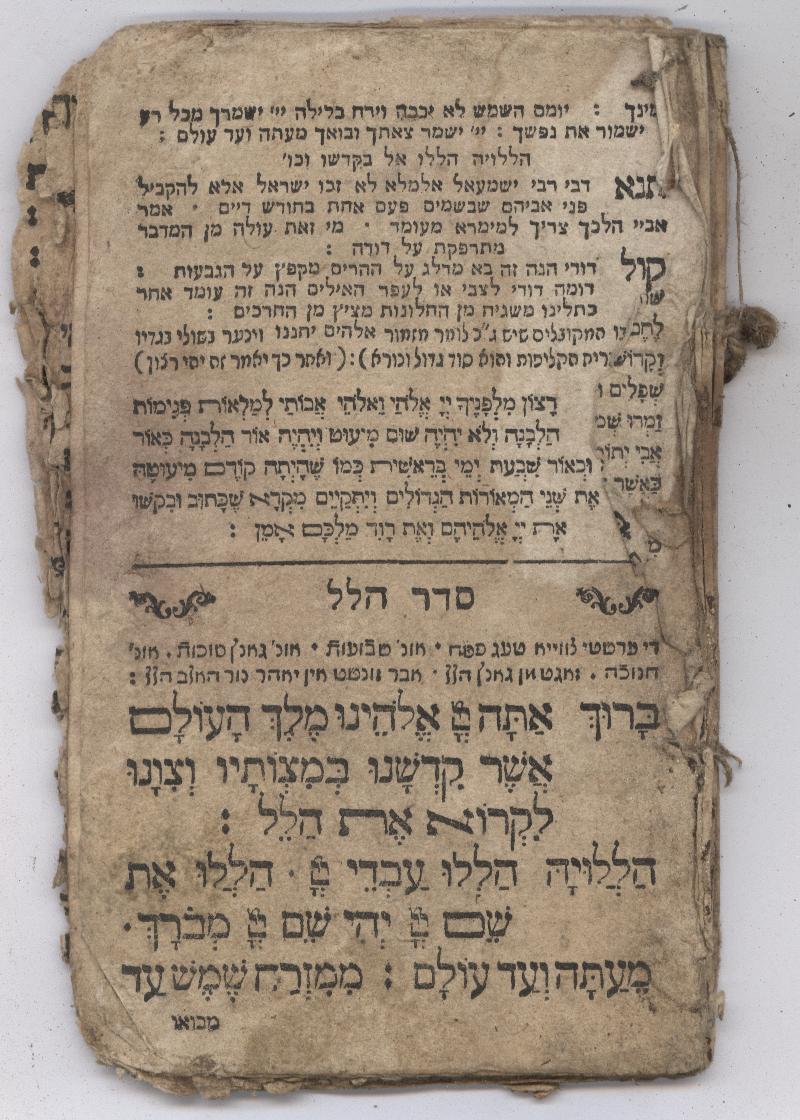 ימינך : יומם השמש לא יככה וירח בלילה יי׳ ישמרך מכל רע
ישמור את נפשך : יי׳ ישמר צאתך ובואך מעתה ועד עולם :
הללויה הללו אל בקדשו וכו׳
תנא דבי רבי ישמעאל אלמלא לא זכו ישראל אלא להקביל
פני אביהם שבשמים פעם אחת בחודש דיים · אמר
אביי הלכך צריך למימרא מעומד · מי זאת עולה מן המדבר
מתרפקת על דודה :
קול דודי הנה זה בא מדלג על ההרים מקפץ על הגבעות :
דומה דודי לצבי או לעפר האילים הנה זה עומד אחר
כתלינו משגיח מן החלונות מציץ מן החרכים :
המקובלים שיש ג״כ לומר מזמור אלהים יחננו וינער בשולי בגדיו
הקליפות והוא סוד גדול ונורא) : (ואחר כך יאמר זה יהי רצון)
רצון מִלְפָנֶיךָ יְיָ אֱלֹהַי וֵאלֹהֵי אֲבוֹתַי לְמַלְאוֹת פְּגִימוֹת
הַלְבָנָה וְלֹא יִהְיֶה שׁוּם מִיעוּט וְיִהְיֶה אוֹר הַלְבָנָה כְּאוֹר
וּכְאוֹר שִׁבְעַת יְמֵי בְרֵאשִׁית כְּמוֹ שֶׁהָיְתָה קוֹדֶם מִיעוּטָהּ
אֶת שְׁנֵי הַמְאוֹרוֹת הַגְדוֹלִים וְיִתְקַיֵים מִקְרָא שֶׁכָּתוּב וּבִקְשׁוּ
אֶת יְיָ אֱלֹהֵיהֶם וְאֶת דָוִד מַלְכָּם אָמֵן :
סדר הלל
טעג פסח · אונ׳ שבועות · אונ׳ גאנץ סוכות . אונ׳
חנוכה . זאגט מן גאנץ הלל ·
בָּרוּךְ אַתָּה יְיָ אֱלֹהֵינוּ מֶלֶךְ הָעוֹלָם
אֲשֶׁר קִדְשָׁנוּ בְּמִצְוֹתָיו וְצִוָנוּ
לִקְרוֹא אֶת הַלֵל :
הַלְלוּיָהּ הַלְלוּ עַבְדֵי יְיָ · הַלְלוּ אֶת
שֵׁם יְיָ יְהִי שֵׁם יְיָ מְבֹרָךְ ·
מֵעַתָּה וְעַד עוֹלָם : מִמִזְרַח שֶׁמֶשׁ עַד
מבואו